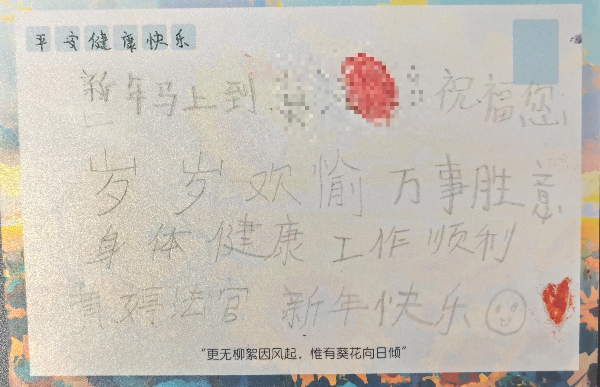 平安健康快乐
新年马上到 祝福您
岁岁欢愉万事胜意
身体健康工作顺利
婷法官 新年快乐
“更无柳絮因风起，惟有葵花向日倾”